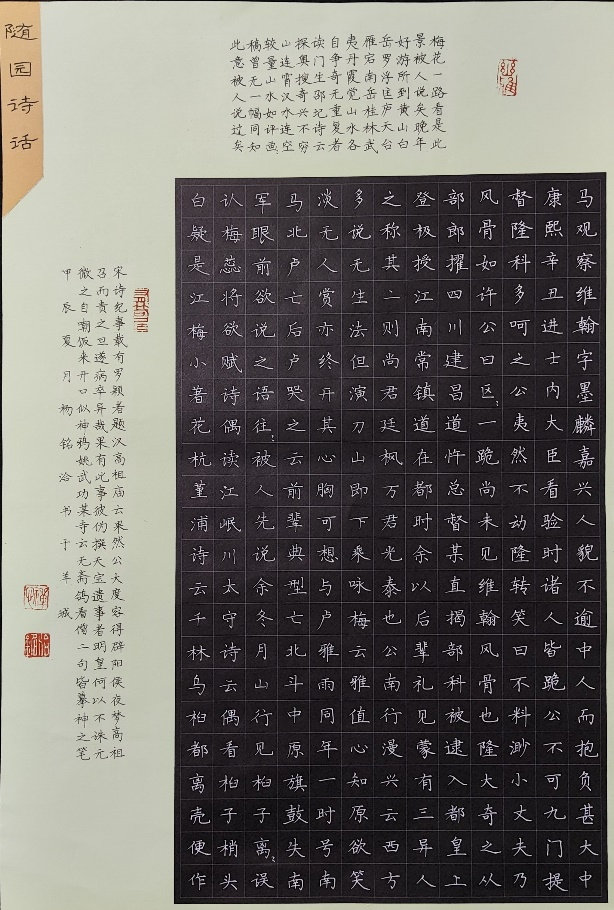 随园诗话
梅花一路看是此
景被人说矣晚年
好游所到黄山白
岳罗浮匡庐天台
雁宕南岳桂林武
夷丹霞觉山水各
自争奇无重复者
读门生邵圮诗云
探奥搜奇兴不穷
山连霄汉水连空
较量山水如评画
稿曾无一幅同知
此意被人说过矣
马观察维翰字墨麟嘉兴人貌不逾中人而抱负甚大中
康熙辛丑进士内大臣看验时诸人皆跪公不可九门提
督隆科多呵之公夷然不动隆转笑曰不料渺小丈夫乃
风骨如许公曰区〻一跪尚未见维翰风骨也隆大奇之从
部郎擢四川建昌道忤总督某直揭部科被逮入都皇上
登极授江南常镇道在都时余以后辈礼见蒙有三异人
之称其二则尚君廷枫万君光泰也公南行漫兴云西方
多说无生法但演刀山即下乘咏梅云雅值心知原欲笑
淡无人赏亦终开其心胸可想与卢雅雨同年一时号南
马北卢亡后卢哭之云前辈典型亡北斗中原旗鼓失南
军眼前欲说之语往〻被人先说余冬月山行见桕子离〻误
认梅蕊将欲赋诗偶读江岷川太守诗云偶看桕子梢头
白疑是江梅小著花杭堇浦诗云千林乌桕都离壳便作
宋诗纪事载有罗颖者题汉高祖庙云果然公大度容得辟阳侯夜梦高祖
召而责之旦遂病卒异哉果有此事彼伪撰天宝遗事者明皇何以不诛元
微之自嘲饭来开口似神鸦姚武功某寺云无斋鸽看僧二句皆摹神之笔
甲辰夏月杨铭洽书于羊城